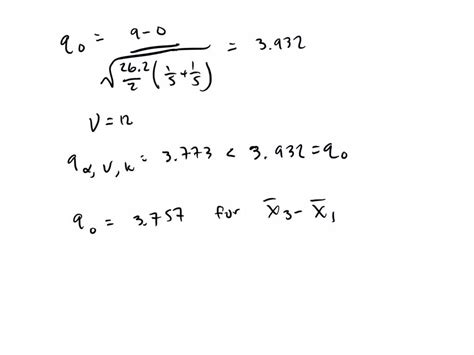 q₀ = (9-0)/√(26.2/2 (1/5 + 1/5)) = 3.932
ν = 12
q_α,ν,k = 3.773 < 3.932 = q₀
q₀ = 3.757 for x̄₃ - x̄₁